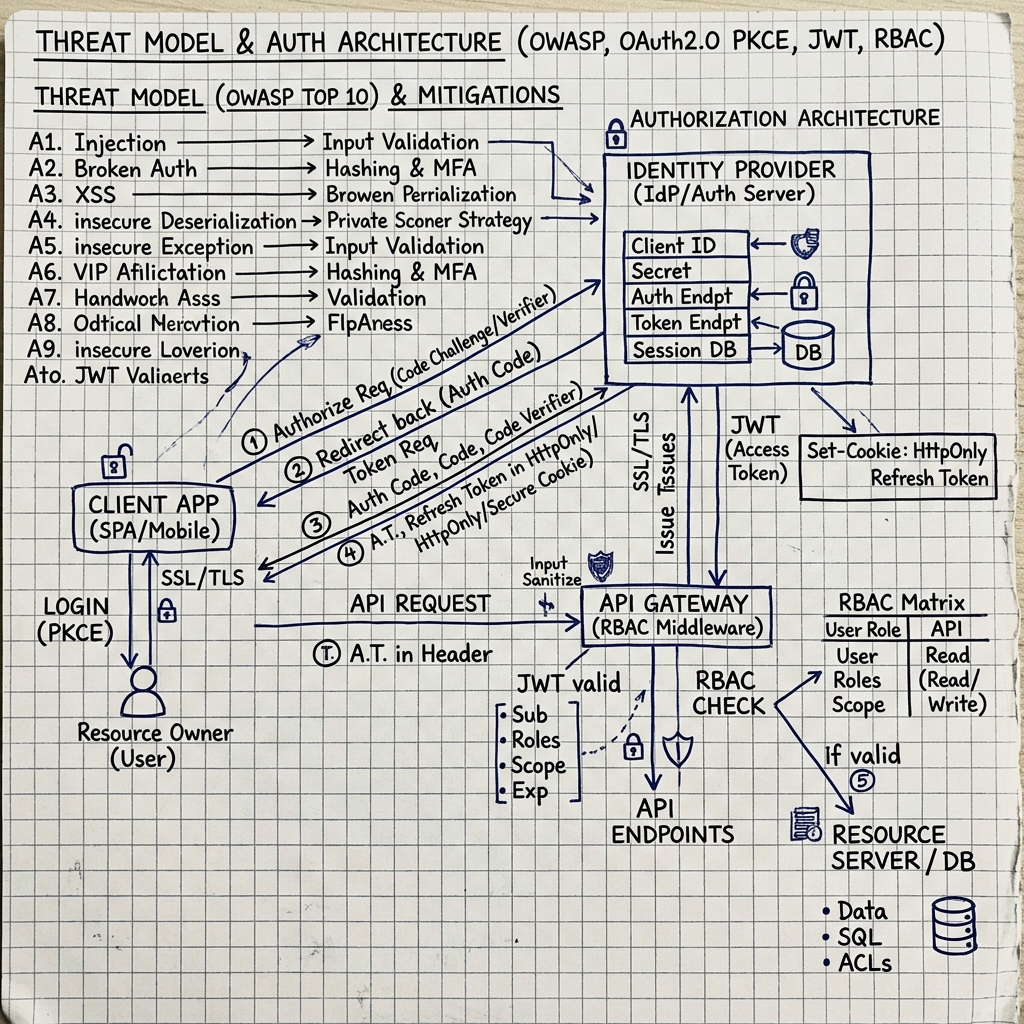 THREAT MODEL & AUTH ARCHITECTURE (OWASP, OAuth2.0 PKCE, JWT, RBAC)
THREAT MODEL (OWASP TOP 10) & MITIGATIONS
A1. Injection → Input Validation
A2. Broken Auth → Hashing & MFA
A3. XSS → Browen Perrialization
A4. insecure Deserialization → Private Sconer Strategy
A5. insecure Exception → Input Validation
A6. VIP Afilictation → Hashing & MFA
A7. Handwoch Asss → Validation
A8. Odtical Mercvtion → FlpAness
A9. insecure Loverion
Ato. JWT Valiaerts
AUTHORIZATION ARCHITECTURE
IDENTITY PROVIDER
(IdP/Auth Server)
Client ID
Secret
Auth Endpt
Token Endpt
Session DB
DB
① Authorize Req (Code Challenge/Verifier)
② Redirect back (Auth Code)
Token Req
③ Auth Code, Code, Code Verifier)
④ A.T., Refresh Token in HttpOnly/
HttpOnly/Secure Cookie)
SSL/TLS
Issue Tissues
JWT
(Access
Token)
Set-Cookie: HttpOnly
Refresh Token
CLIENT APP
(SPA/Mobile)
SSL/TLS
LOGIN
(PKCE)
Resource Owner
(User)
API REQUEST
T. A.T. in Header
Input
Sanitize
API GATEWAY
(RBAC Middleware)
JWT valid
• Sub
• Roles
• Scope
• Exp
RBAC
CHECK
API
ENDPOINTS
RBAC Matrix
User Role | API
User Read
Roles (Read/
Scope Write)
If valid
⑤
RESOURCE
SERVER / DB
• Data
• SQL
• ACLs